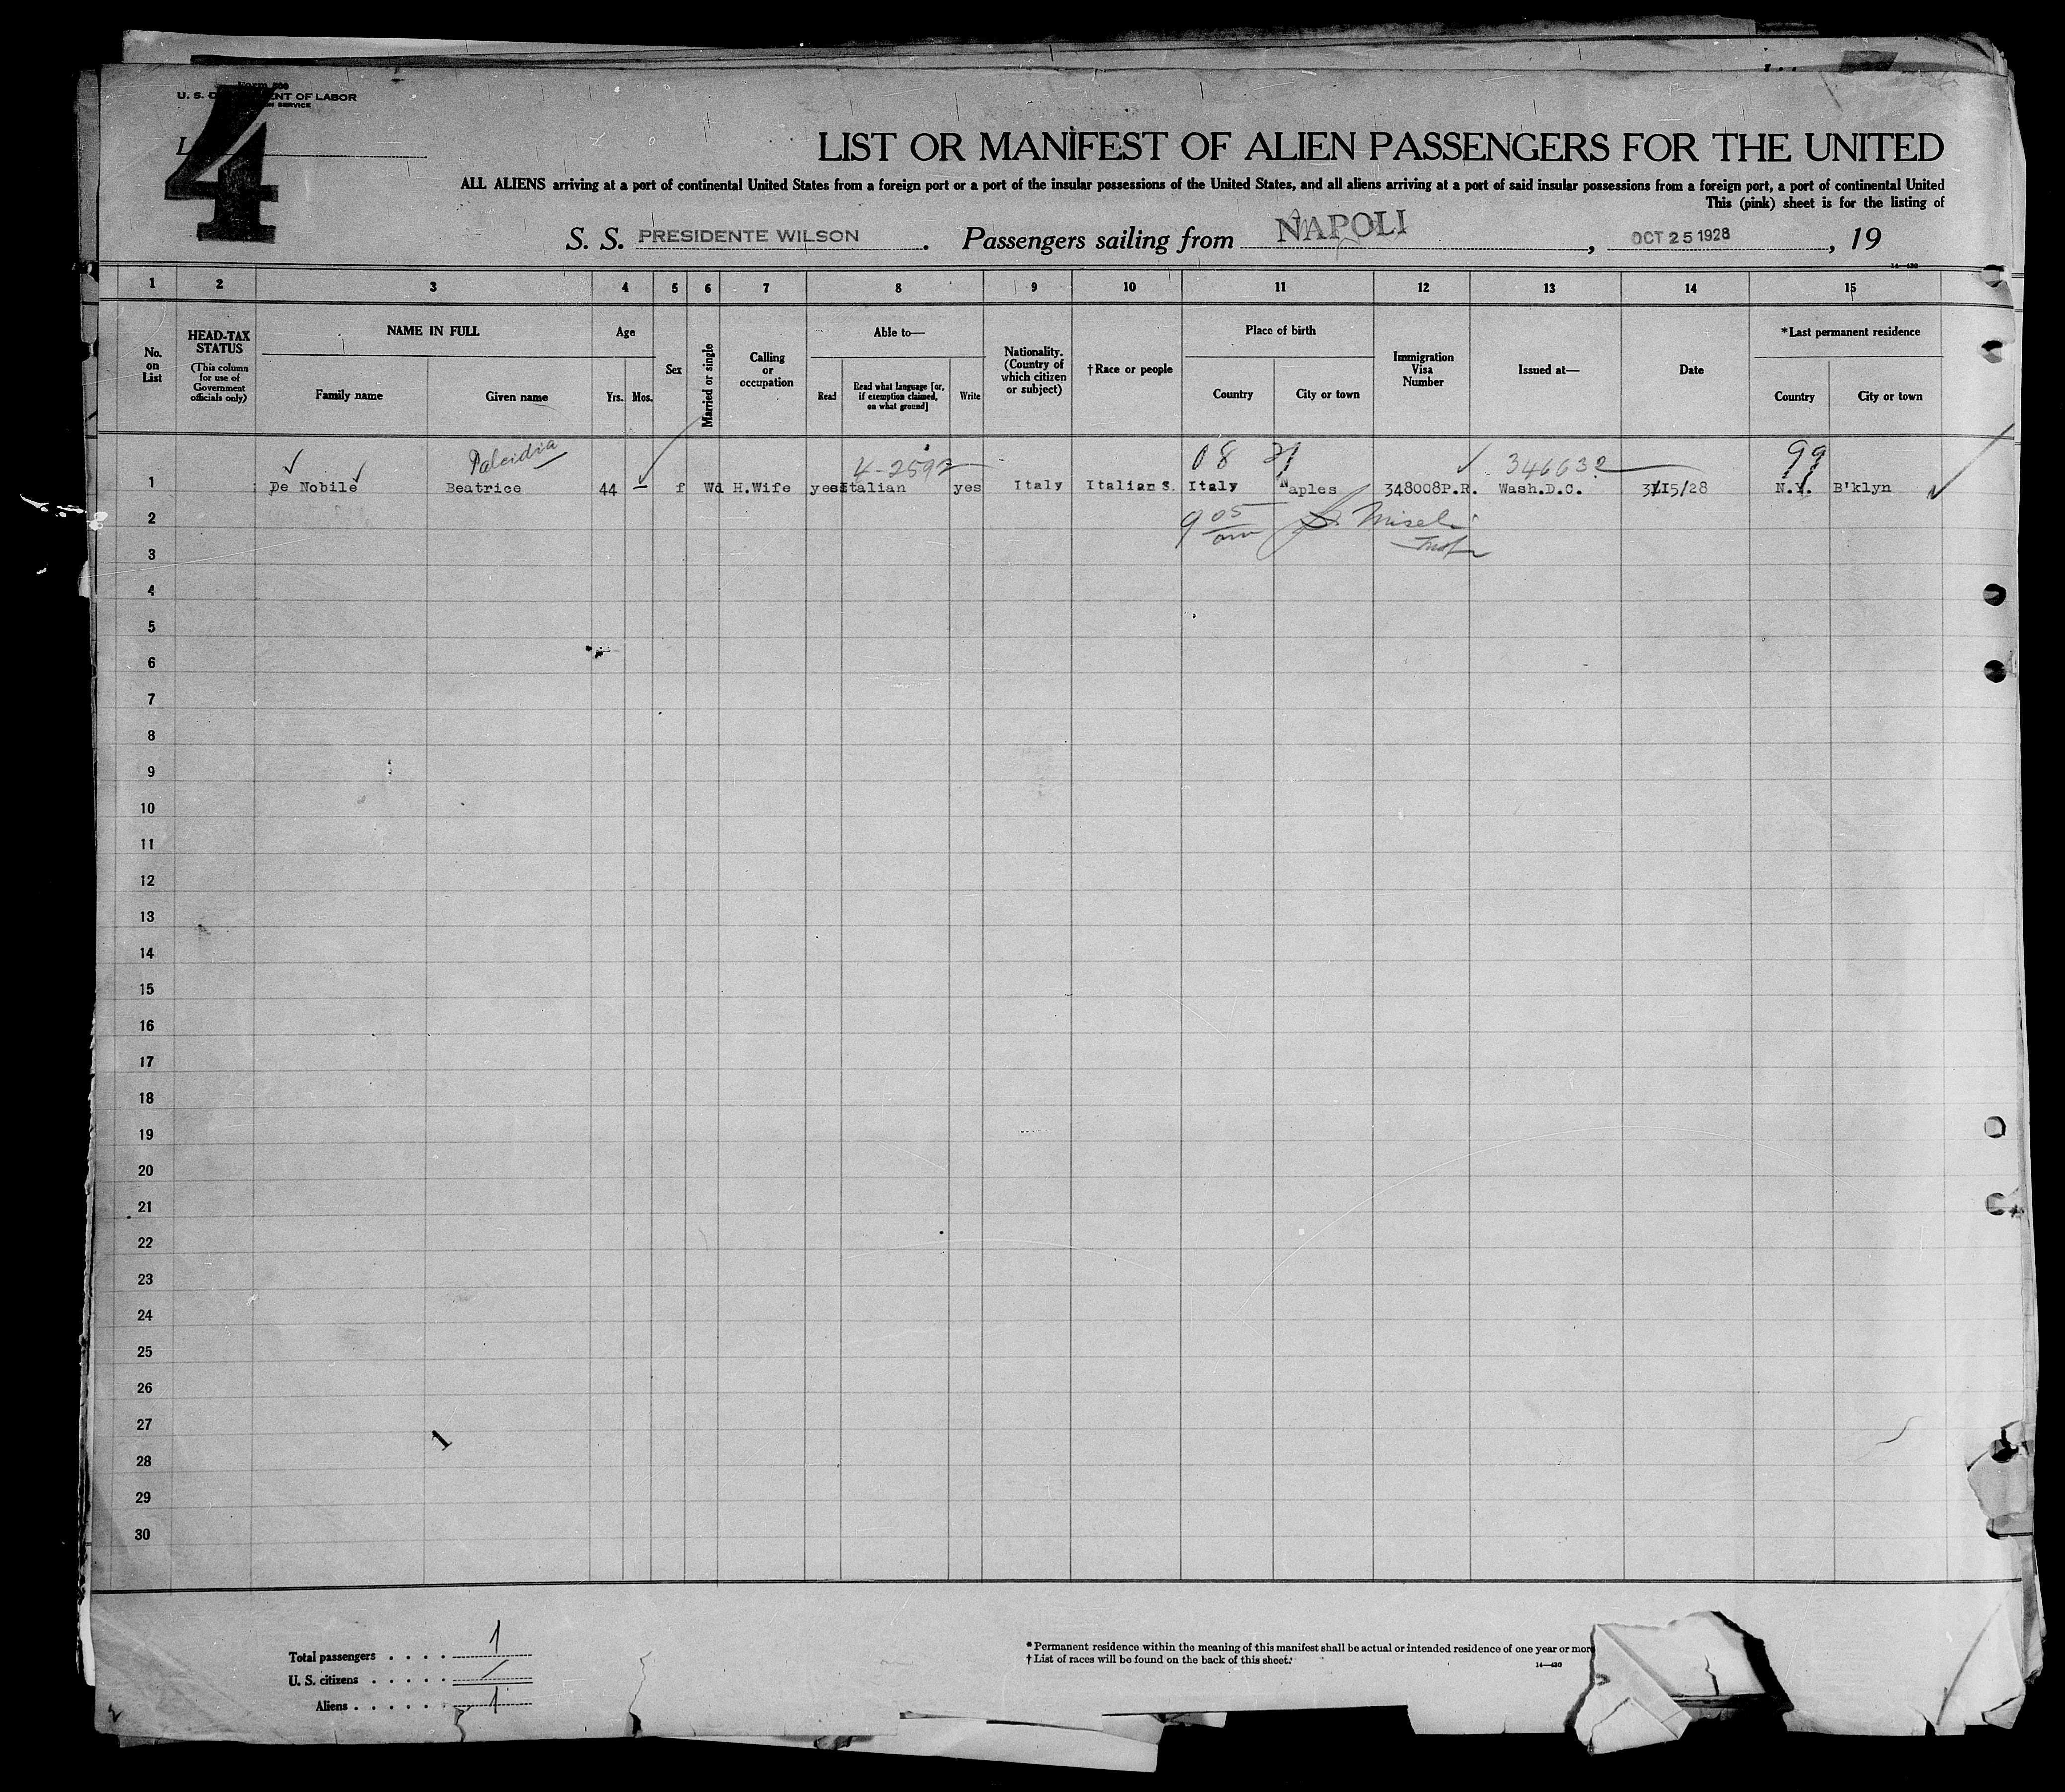 Form 500
U. S. DEPARTMENT OF LABOR
SERVICE
4
LIST OR MANIFEST OF ALIEN PASSENGERS FOR THE UNITED
ALL ALIENS arriving at a port of continental United States from a foreign port or a port of the insular possessions of the United States, and all aliens arriving at a port of said insular possessions from a foreign port, a port of continental United
This (pink) sheet is for the listing of
S. S. PRESIDENTE WILSON . Passengers sailing from NAPOLI , OCT 25 1928 , 19
14—430
1 2 3 4 5 6 7 8 9 10 11 12 13 14 15
No. on List
HEAD-TAX STATUS
(This column for use of Government officials only)
NAME IN FULL
Family name Given name
Age
Yrs. Mos.
Sex
Married or single
Calling or occupation
Able to—
Read
Read what language [or, if exemption claimed, on what ground]
Write
Nationality. (Country of which citizen or subject)
†Race or people
Place of birth
Country City or town
Immigration Visa Number
Issued at—
Date
*Last permanent residence
Country City or town
4-2592 08 346632 99
1 De Nobile Beatrice 44 — f Wd H.Wife yes Italian yes Italy Italian S. Italy Naples 348008P.R. Wash.D.C. 3/15/28 N.Y. B'klyn
2
9 05 am
3
4
5
6
7
8
9
10
11
12
13
14
15
16
17
18
19
20
21
22
23
24
25
26
27
1
28
29
30
Total passengers . . . . 1
U. S. citizens . . . . . /
Aliens . . . . . . 1
* Permanent residence within the meaning of this manifest shall be actual or intended residence of one year or more
† List of races will be found on the back of this sheet.
14—430